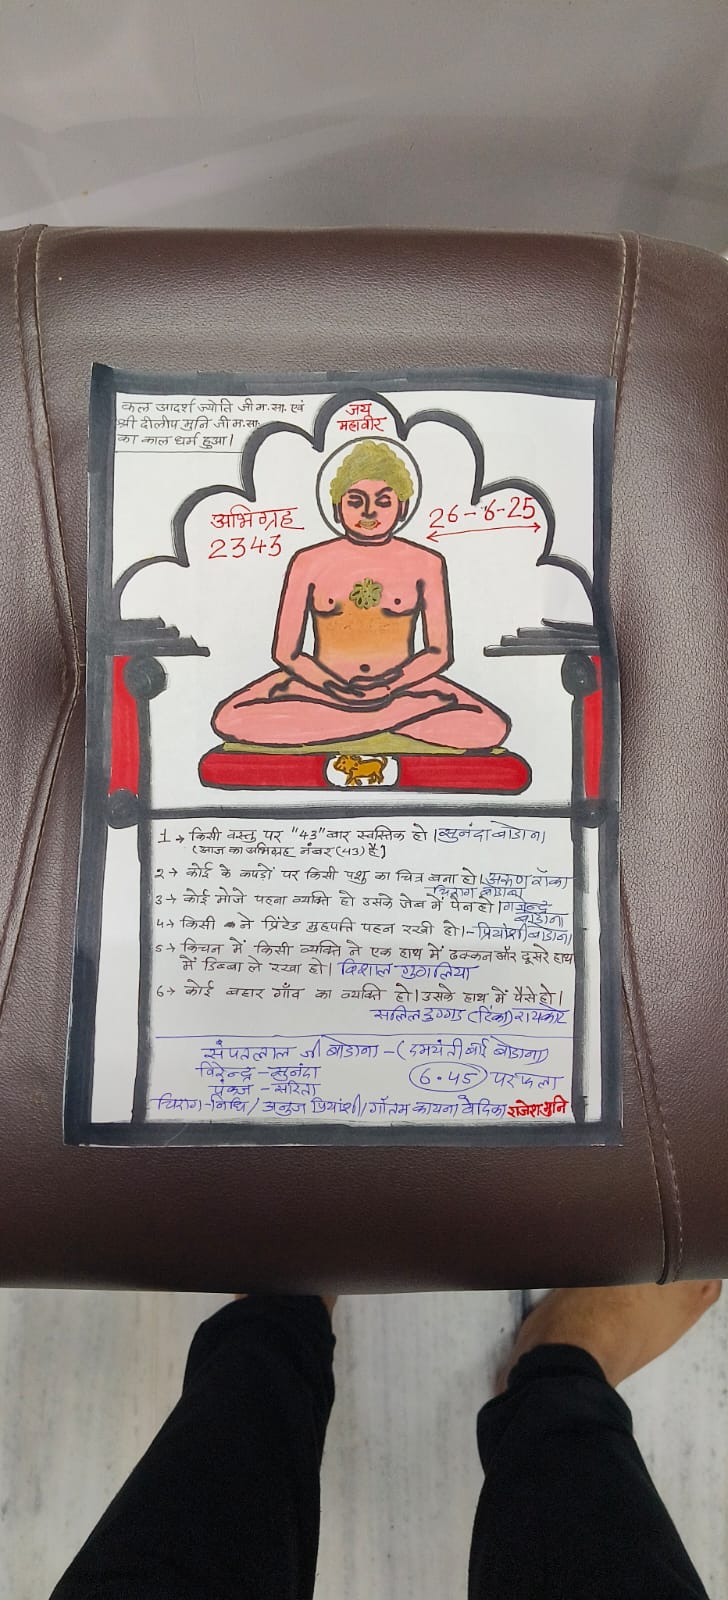 कल आदर्श ज्योति जी म.सा. एवं
श्री दीलीप मुनि जी म.सा.
का काल धर्म हुआ।
जय
महावीर
अभिग्रह
2343
26-6-25
1→ किसी वस्तु पर "43" बार स्वस्तिक हो। सुनंदा बोडाना
(आज का अभिग्रह नंबर (43) है)
2→ कोई के कपड़ों पर किसी पशु का चित्र बना हो। अरूण राँका
चिराग बोडाना
3→ कोई मोजे पहना व्यक्ति हो उसके जेब में पेन हो। गजेन्द्र
बोडाना
4→ किसी ने प्रिंटेड मुहपत्ति पहन रखी हो।- प्रियांशी बोडाना
5→ किचन में किसी व्यक्ति ने एक हाथ में ढक्कन और दूसरे हाथ
में डिब्बा ले रखा हो। विशाल गुगलिया
6→ कोई बहार गाँव का व्यक्ति हो। उसके हाथ में पैसे हो।
सलिल दुग्गड (टिंका) रायकोट
संपतलाल जी बोडाना - (दमयंती बाई बोडाना)
विरेन्द्र - सुनंदा
6.45 पर फला
पंकज - सरिता
चिराग-निधि / अनुज प्रियांशी / गौतम कायना वेदिका राजेश मुनि